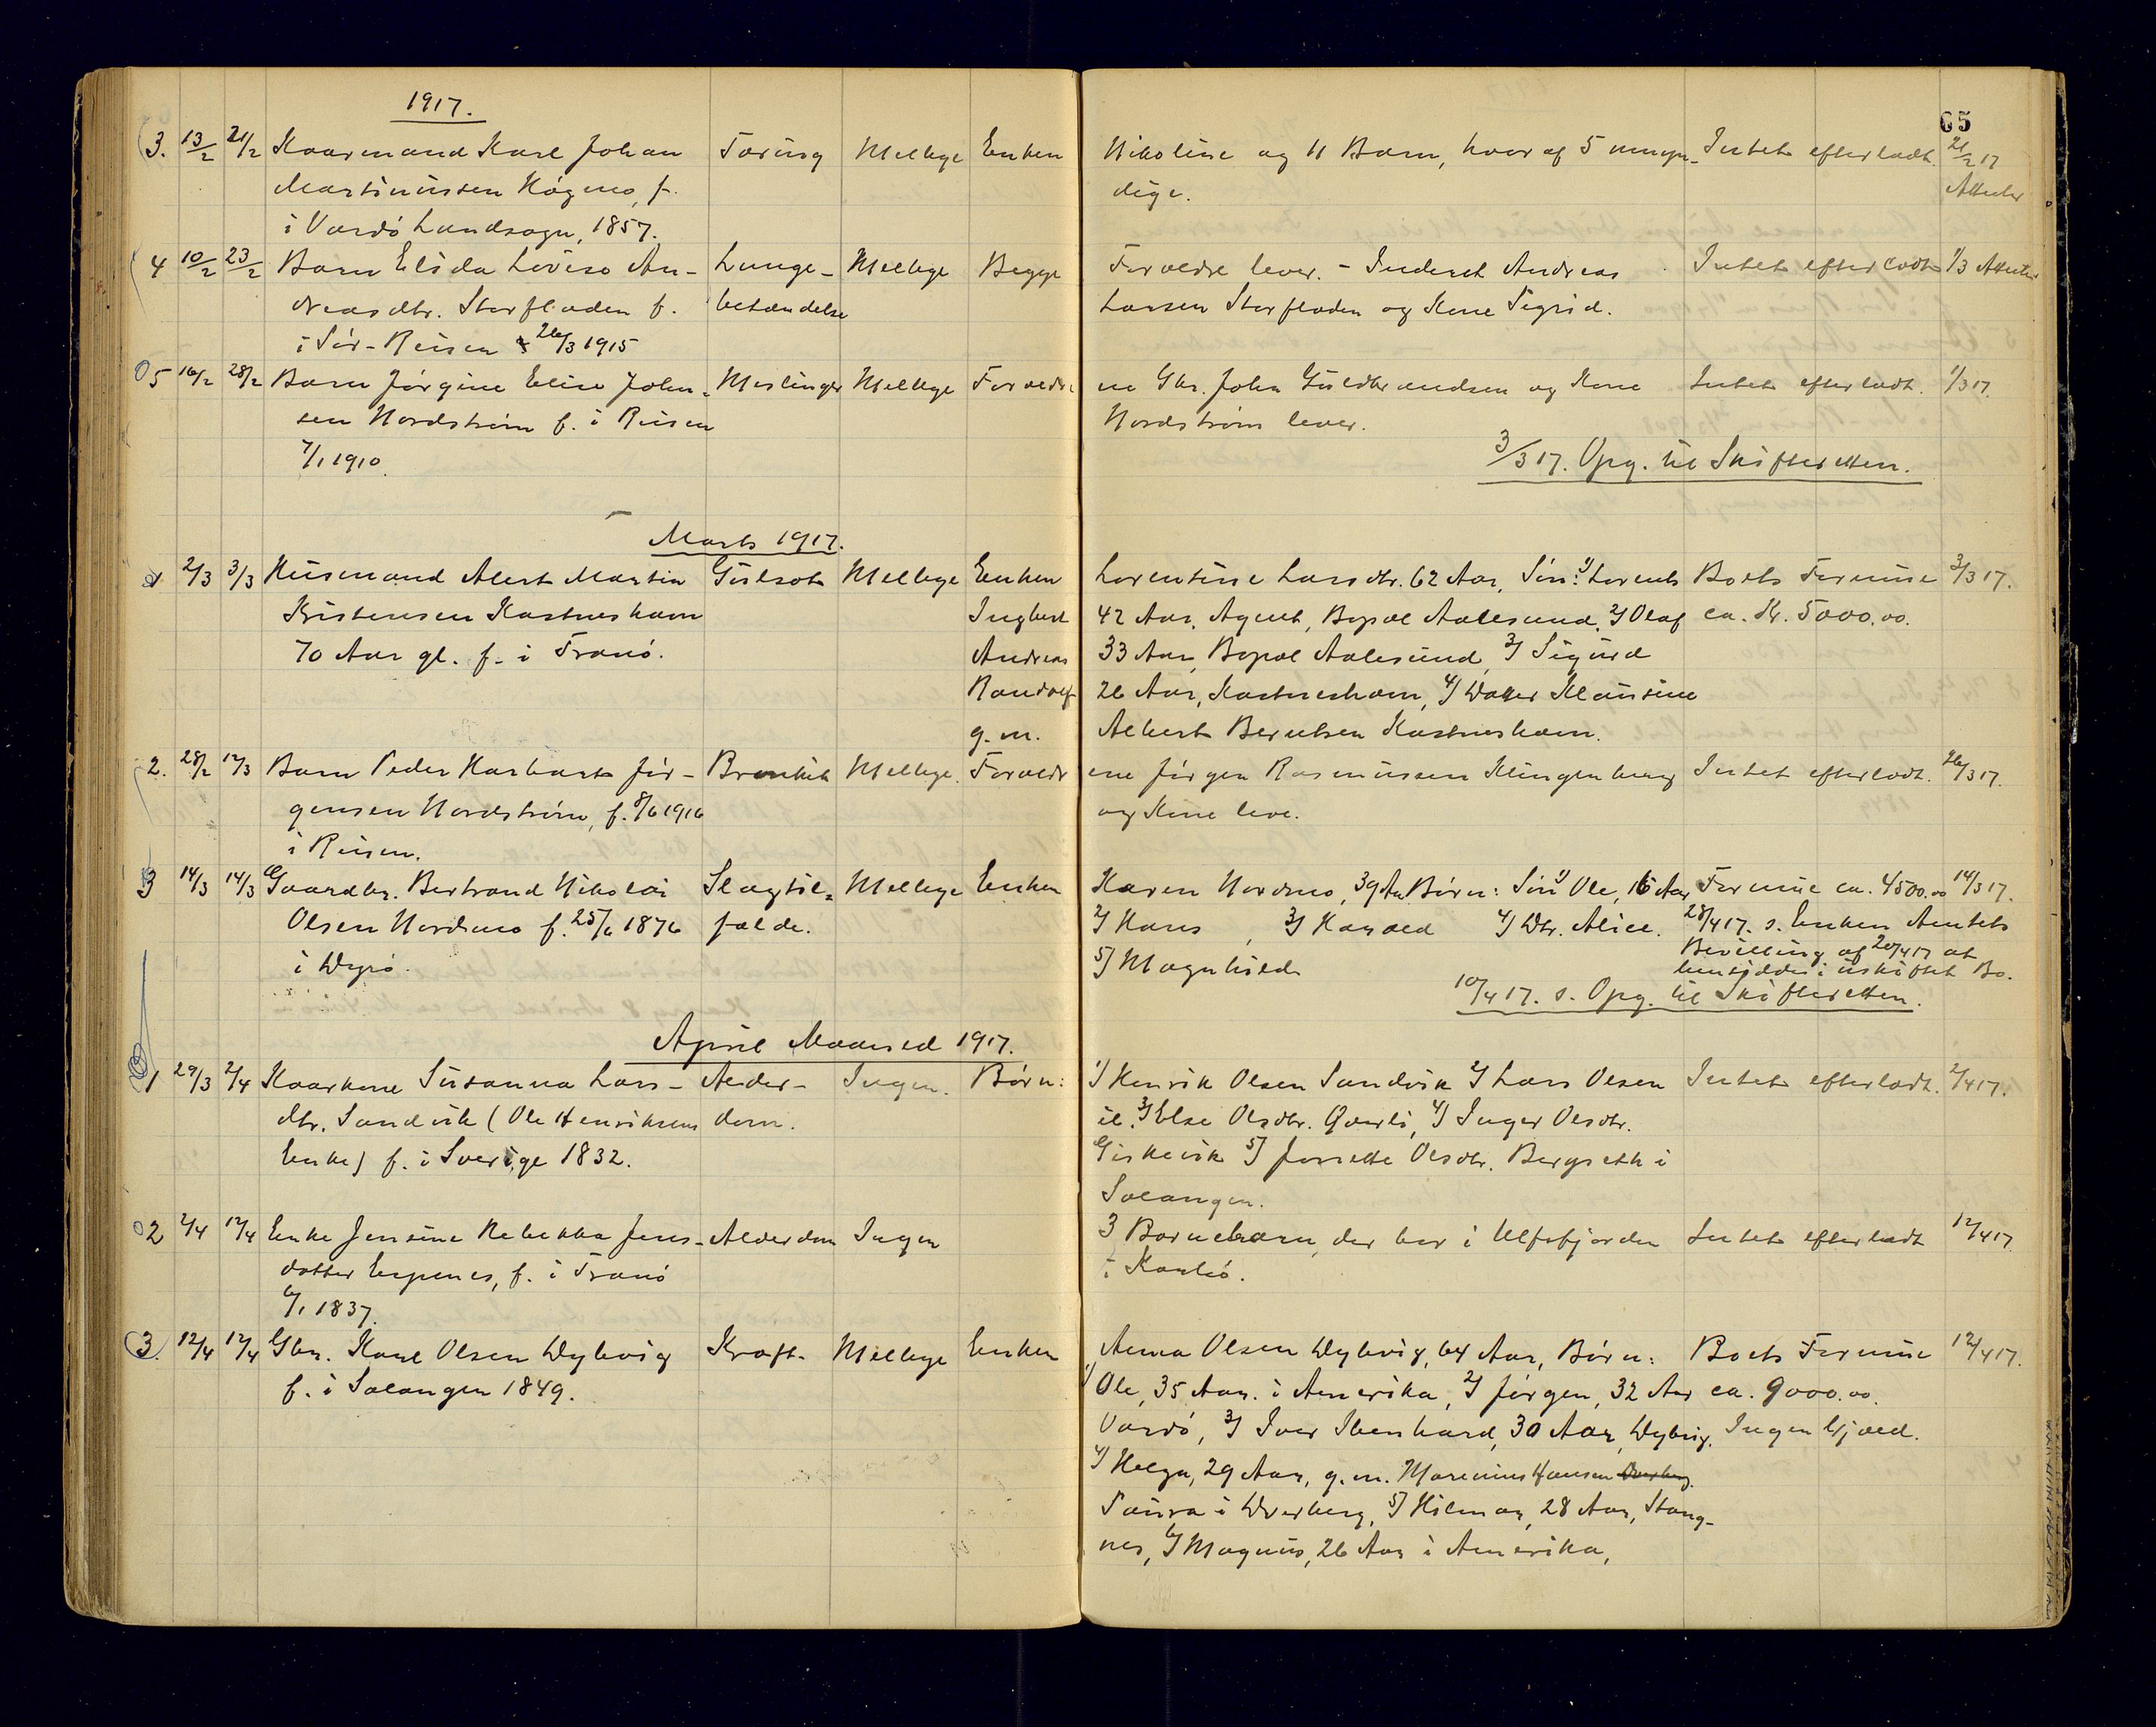 1917.
65
3. 13/2 21/2 Kaarmand Karl Johan Tæring Mellbye Enken Nikoline og 11 Barn, hvoraf 5 umyn- Intet efterladt. 21/2 17
Martinussen Høgmo, f. dige. Attester
i Vardö Landsogn, 1857.
4 10/2 23/2 Barn Elida Lovise An- Lunge- Mellbye Begge Forældre lever. - Inderst Andreas Intet efterladt 1/3 Attester
dreasdtr. Storfladen f. betændelse Larsen Storfladen og Kone Sigrid.
i Sör-Reisen 26/3 1915
5 16/2 28/2 Barn Jörgine Elise John- Meslinger Mellbye Forældre ne Gbr. John Guldbrandsen og Kone Intet efterladt. 1/3 17.
sen Nordström f. i Reisen Nordström lever.
7/1 1910.
3/3 17. Opg. til Skifteretten.
Marts 1917.
1 2/3 3/3 Husmand Albert Martin Gulsot Mellbye Enken Lorentine Larsdtr. 62 Aar, Sön: 1) Lorents Boets Formue 3/3 17.
Kristensen Kastneshavn Ingbert 42 Aar, Agent, Bopæl Aalesund, 2) Olaf ca. Kr. 5000.00.
70 Aar gl. f. i Tranö. Andreas 33 Aar, Bopæl Aalesund, 3) Sigurd
Randolf 26 Aar, Kastneshavn, 4) Datter Klausine
g. m. Albert Berntsen Kastneshavn.
2. 28/2 12/3 Barn Peder Harbart Jör- Bronkit Mellbye. Forældr ene Jörgen Rasmussen Klingenberg Intet efterladt. 26/3 17.
gensen Nordström, f. 8/6 1916 og Kone leve.
i Reisen.
3 14/3 14/3 Gaardbr. Bertrand Nikolai Slagtil- Mellbye Enken Karen Nordmo, 39 Aar Börn: Sön 1) Ole, 16 Aar Formue ca. 4500.00 14/3 17.
Olsen Nordmo f. 25/6 1876 fælde. 2) Hans , 3) Harald 4) Dtr. Alice. 28/4 17. s. Enken Amtets
i Dyrö. 5) Magnhild Bevilling af 20/4 17 at
hensidde i uskiftet Bo.
10/4 17. s. Opg. til Skifteretten.
April Maaned 1917.
1 29/3 2/4 Kaarkone Susanna Lars- Alder- Ingen. Börn: 1) Henrik Olsen Sandvik 2) Lars Olsen Intet efterladt. 2/4 17.
dtr. Sandvik (Ole Henriksens dom. il. 3) Else Olsdtr. 4) Inger Olsdtr.
Enke) f. i Sverige 1832. 5) Olsdtr. Bergseth i
Salangen.
2 2/4 12/4 Enke Jensine Rebekka Jens- Alderdom Ingen 3 Barnebarn, der bor i Ulfsfjorden Intet efterladt 12/4 17
datter Espenes, f. i Tranö i Karlsö.
6/1 1837.
3. 12/4 12/4 Gbr. Karl Olsen Dybvig Kræft. Mellbye Enken Anna Olsen Dybvig, 64 Aar, Börn: Boets Formue 12/4 17.
f. i Salangen 1849. 1) Ole, 35 Aar. i Amerika, 2) Jörgen, 32 Aar ca. 9000.00.
Vardö, 3) Iver Ibenhard, 30 Aar, Dybvig. Ingen Gjæld.
4) Helga, 29 Aar, g. m. Marenius Hansen
i Dverberg, 5) Hilmar, 28 Aar, Stang-
nes, 6) Magnus, 26 Aar i Amerika,